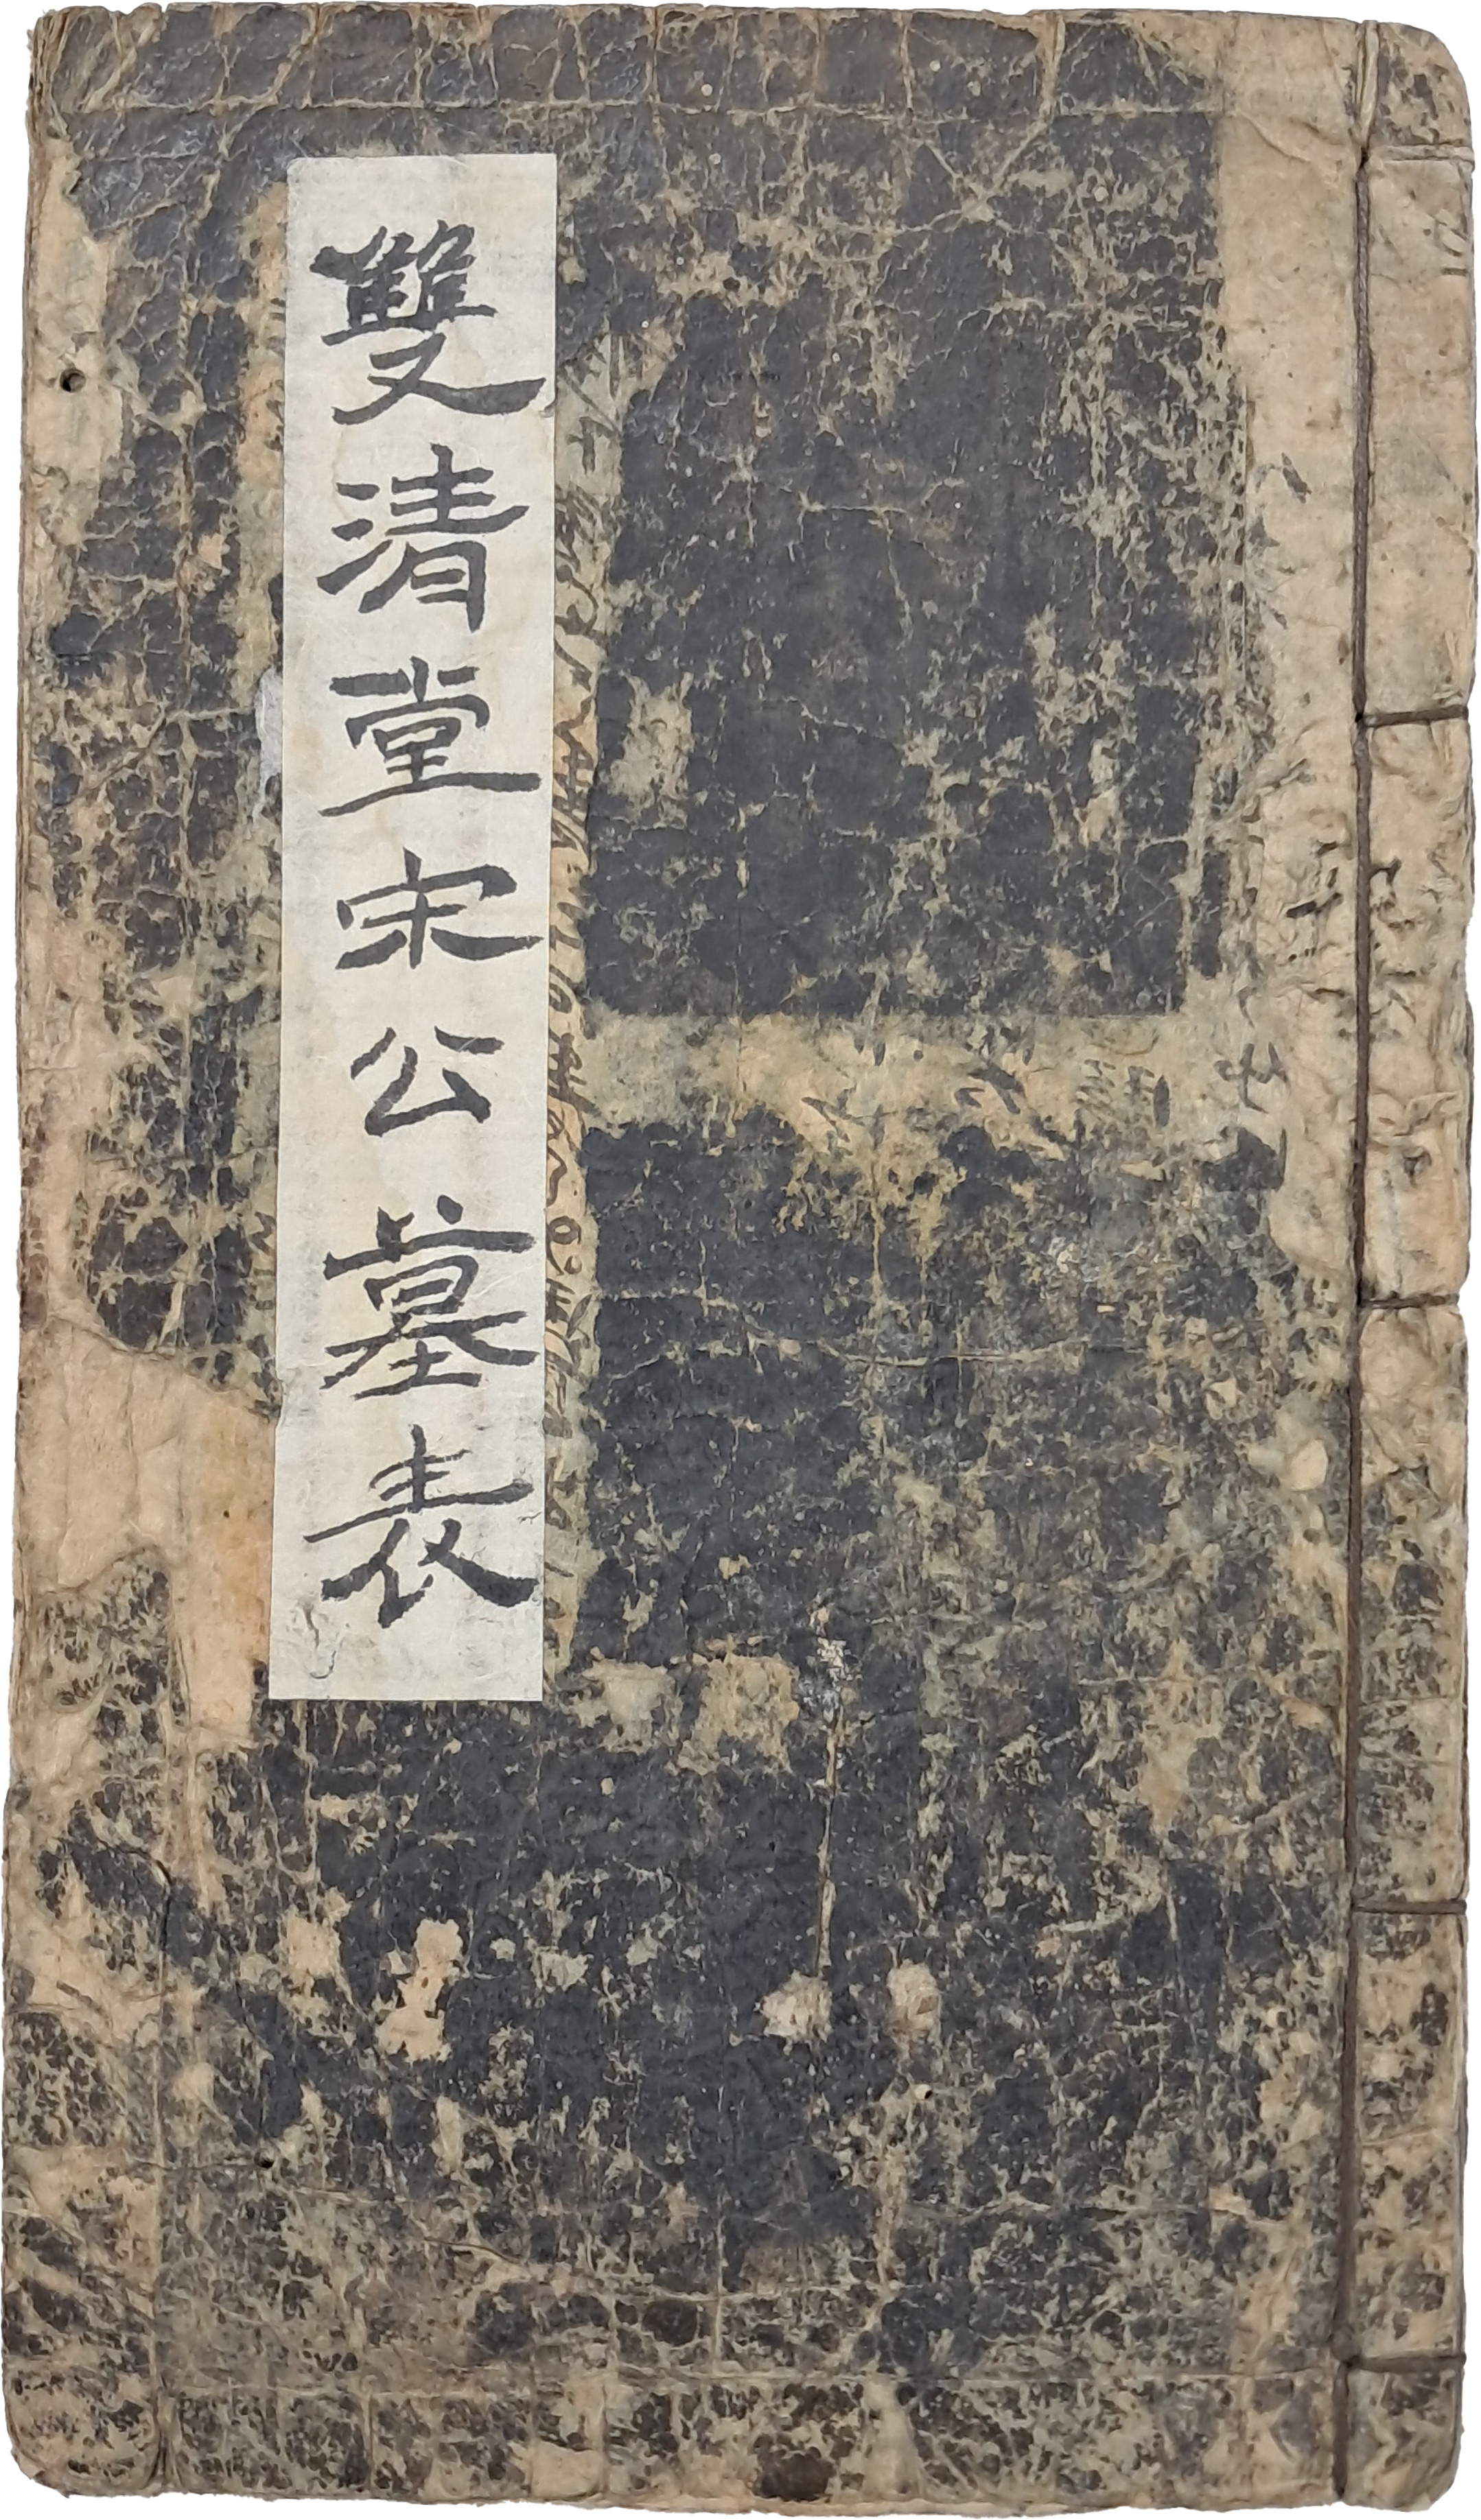 雙清堂宋公墓表